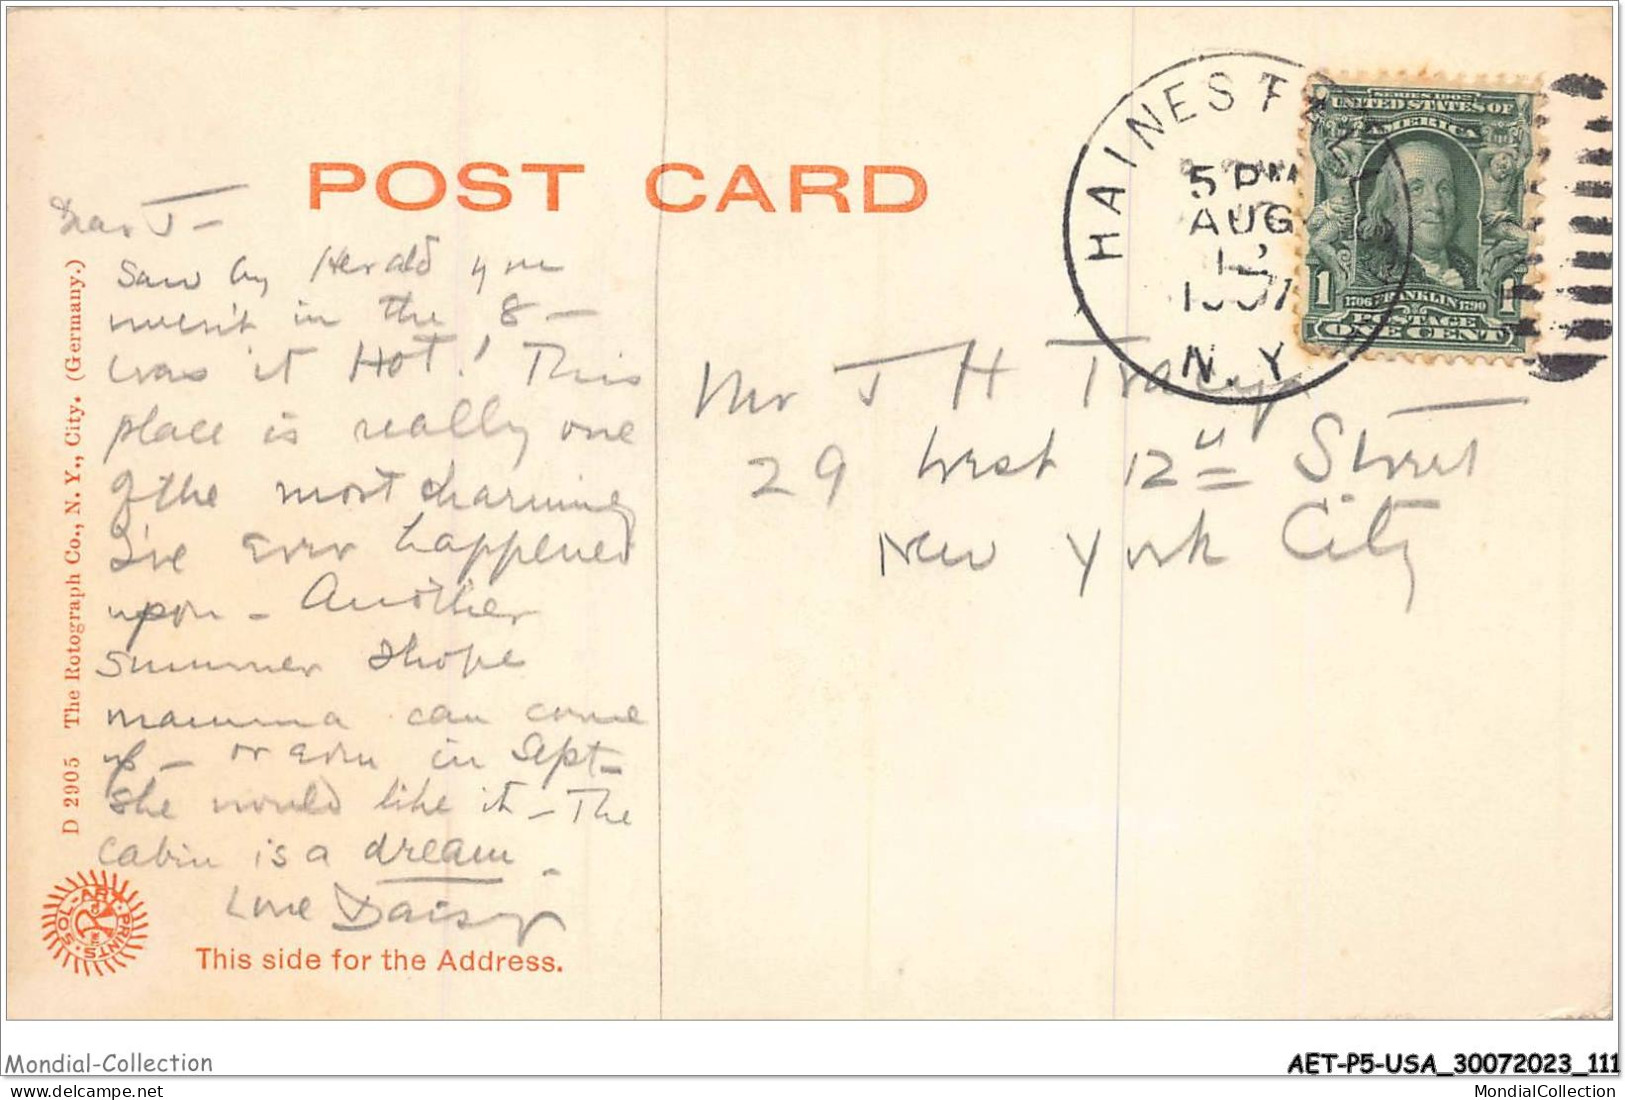 POST CARD
HAINES FALLS
5 PM
AUG
1907
N.Y.
SERIES 1902
UNITED STATES OF
AMERICA
1 1706 FRANKLIN 1790 1
POSTAGE
ONE CENT
Dear J—
Saw by Herald you
weren't in the 8—
was it Hot! This
place is really one
of the most charming
I've ever happened
upon — Another
summer I hope
mamma can come
up — or even in Sept—
She would like it — The
cabin is a dream.
Love Daisy
Mr J H Tracy
29 West 12th Street
New York City
D 2905 The Rotograph Co., N. Y., City. (Germany.)
SOL-ART PRINTS
This side for the Address.
Mondial-Collection
AET-P5-USA_30072023_111
MondialCollection
MondialCollection